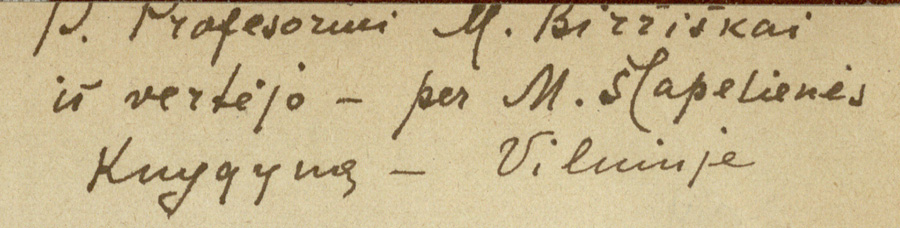 P. Profesoriui M. Biržiškai
iš vertėjo – per M. Šlapelienės
Knygyną – Vilniuje